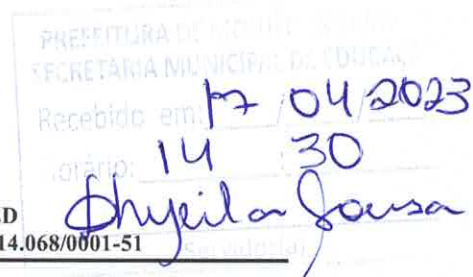 PREFEITURA DE
SECRETARIA MUNICIPAL DE EDUCAÇ
Recebido em: 17 / 04 / 2023
orário: 14 : 30
Sousa
D
14.068/0001-51
Servidor(a)